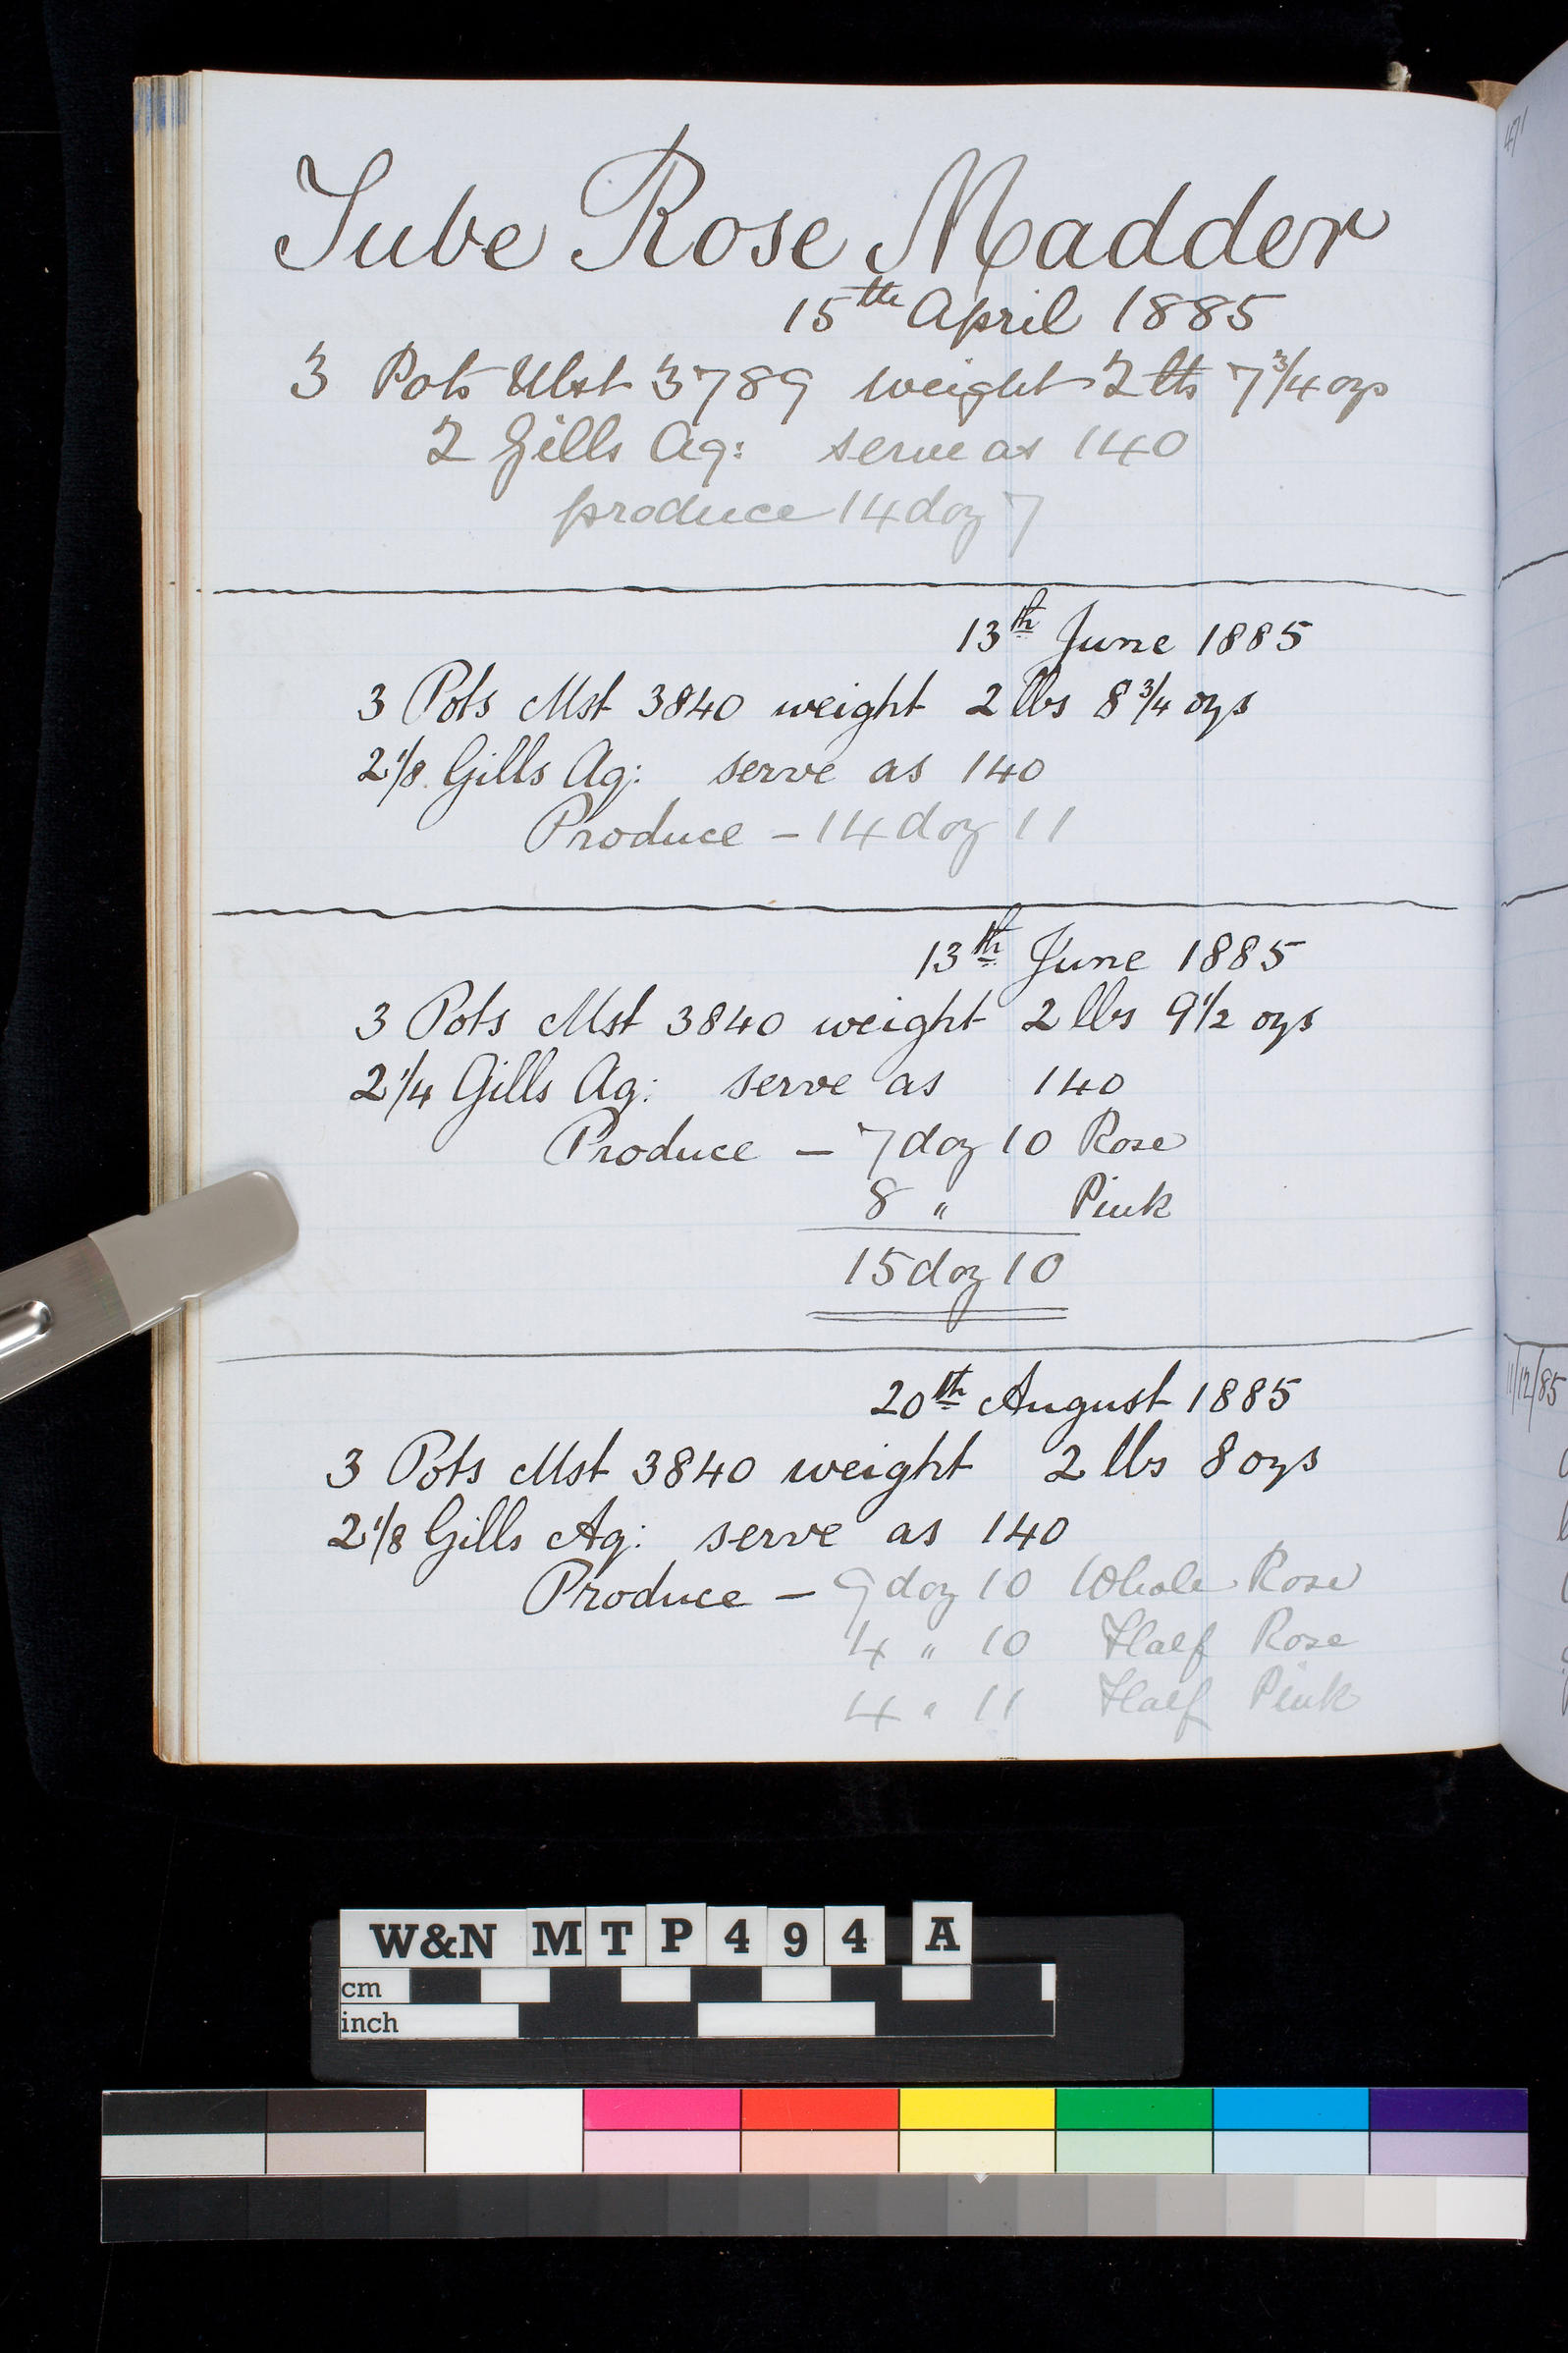 Tube Rose Madder
15th April 1885
3 Pots Mst 3789 weight 2 lbs 7 3/4 ozs
2 Gills Aq: serve as 140
produce 14 doz 7
13th June 1885
3 Pots Mst 3840 weight 2 lbs 8 3/4 ozs
2 1/8 Gills Aq: serve as 140
Produce - 14 doz 11
13th June 1885
3 Pots Mst 3840 weight 2 lbs 9 1/2 ozs
2 1/4 Gills Aq: serve as 140
Produce - 7 doz 10 Rose
8 " Pink
15 doz 10
20th August 1885
3 Pots Mst 3840 weight 2 lbs 8 ozs
2 1/8 Gills Aq: serve as 140
Produce - 9 doz 10 Whole Rose
4 " 10 Half Rose
4 " 11 Half Pink
11/12/85
W&N MTP494 A
cm
inch